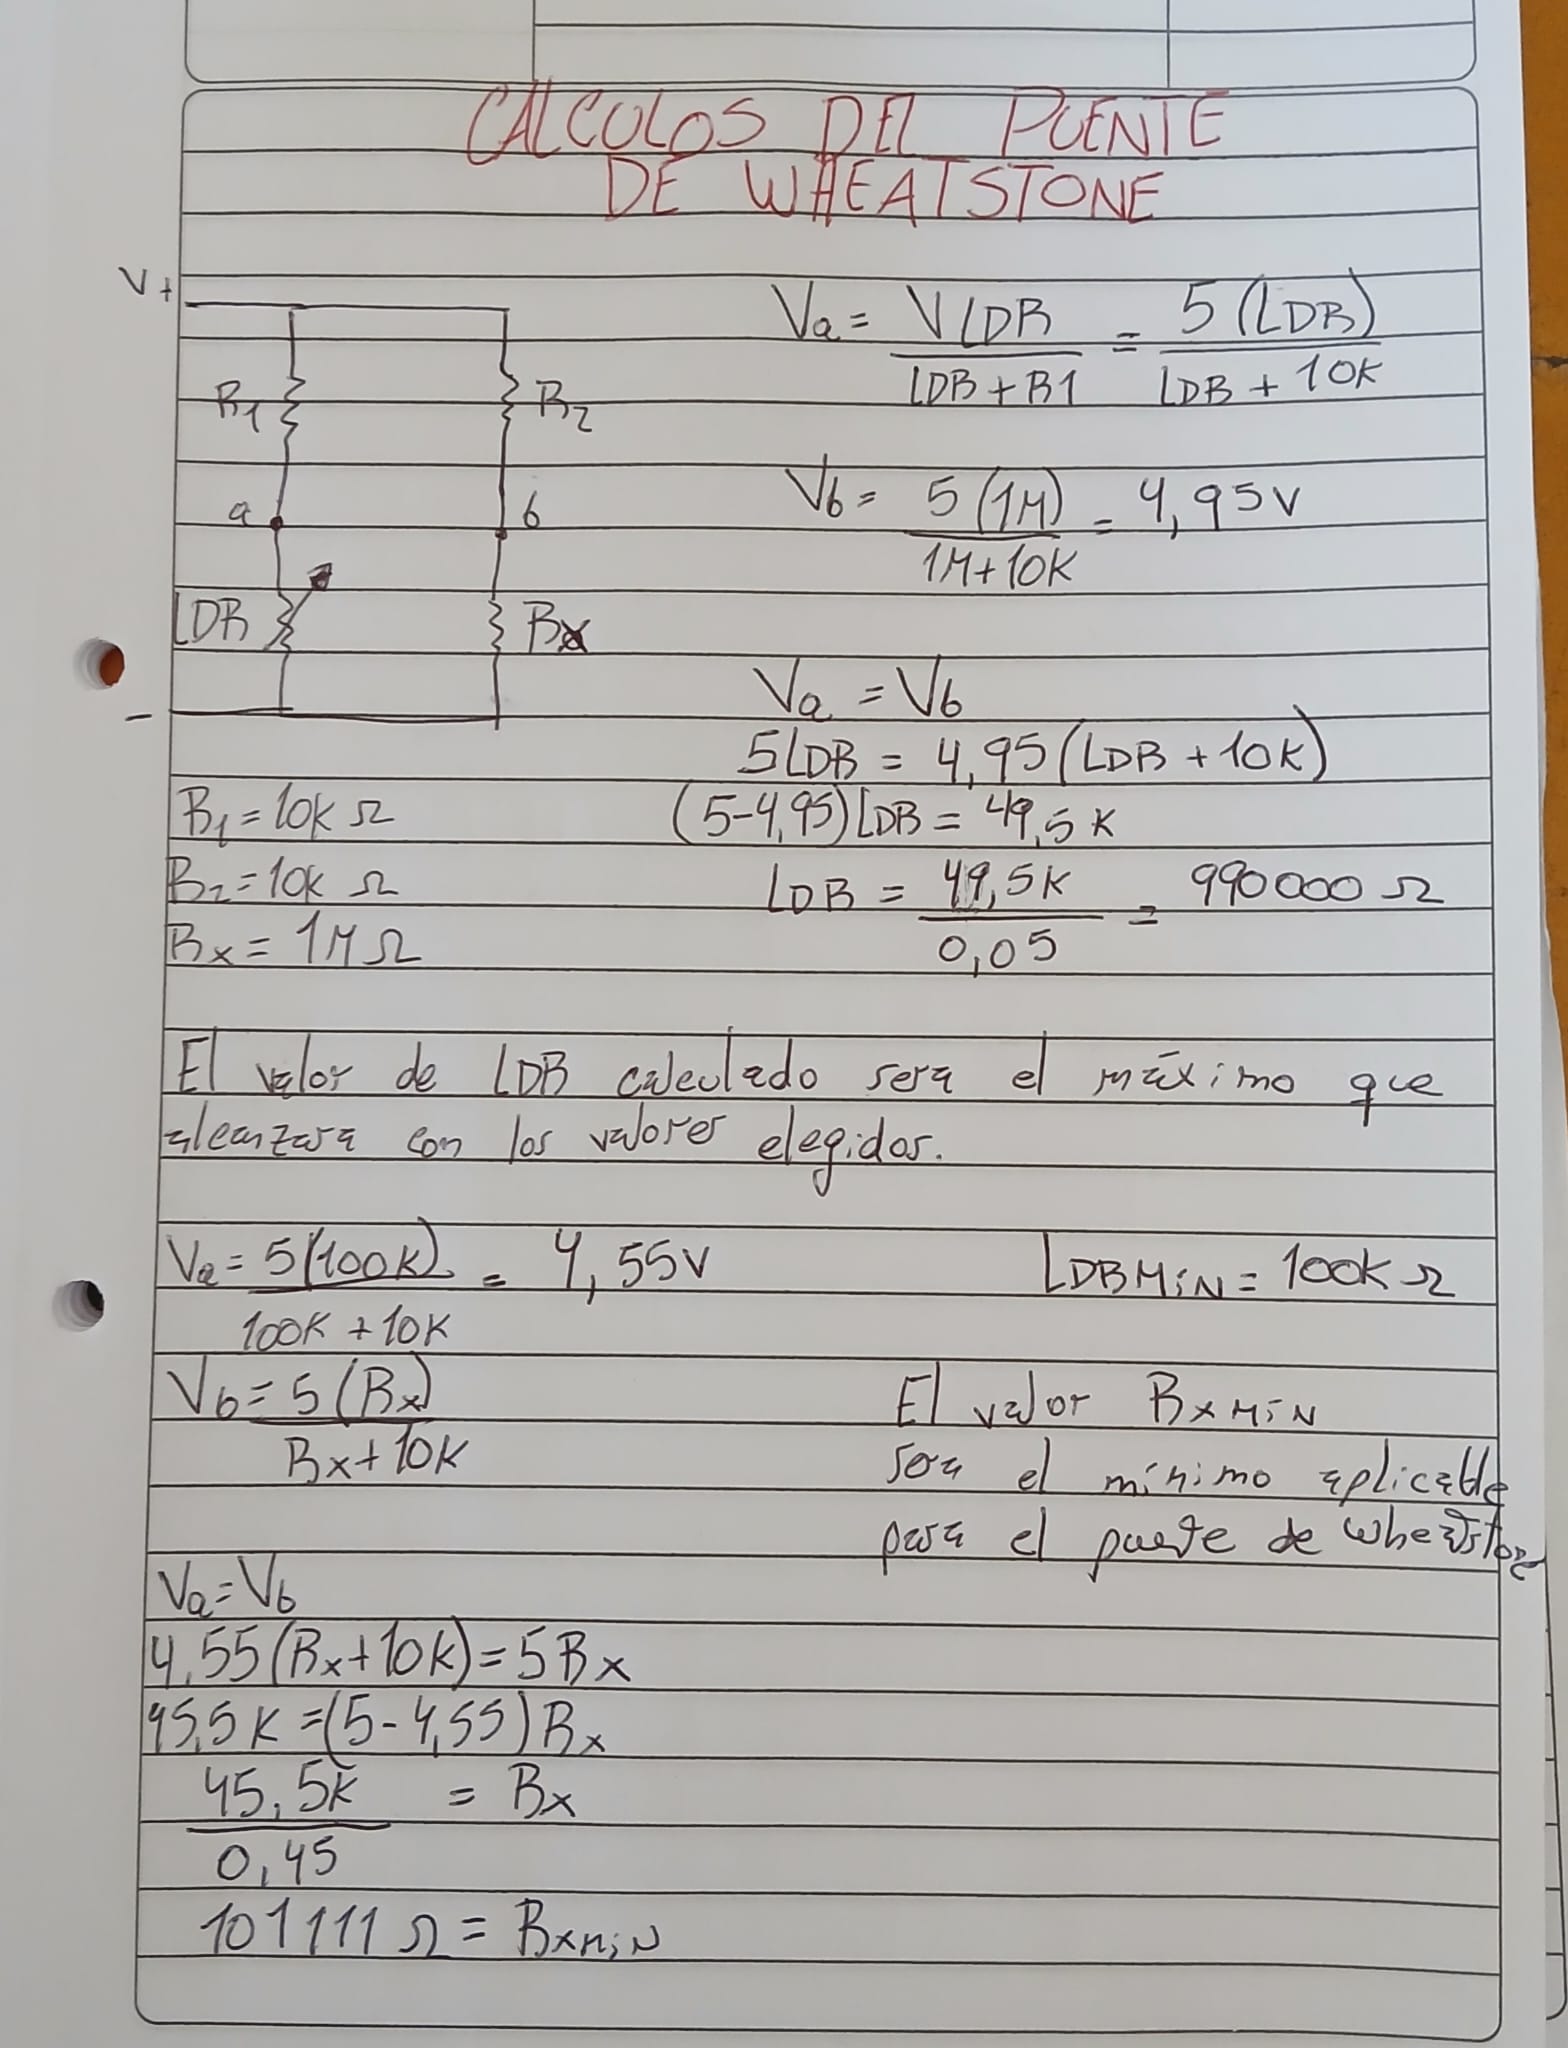 CALCULOS DEL PUENTE
DE WHEATSTONE
V+
R1
R2
a
b
LDR
Rx
-
Va = VLDR / LDR + R1 = 5 (LDR) / LDR + 10K
Vb = 5 (1M) / 1M + 10K = 4,95V
Va = Vb
5LDR = 4,95 (LDR + 10K)
R1 = 10K Ω
(5-4,95) LDR = 49,5 K
R2 = 10K Ω
LDR = 49,5K / 0,05 = 990000 Ω
Rx = 1M Ω
El valor de LDR calculado sera el máximo que
alcanzara con los valores elegidos.
Va = 5(100K) / 100K + 10K = 4,55V
LDRMiN = 100K Ω
Vb = 5 (Rx) / Rx + 10K
El valor RxMiN
sera el mínimo aplicable
para el puente de wheatstone
Va = Vb
4,55 (Rx + 10K) = 5Rx
45,5 K = (5 - 4,55) Rx
45,5K / 0,45 = Rx
101111 Ω = RxMiN